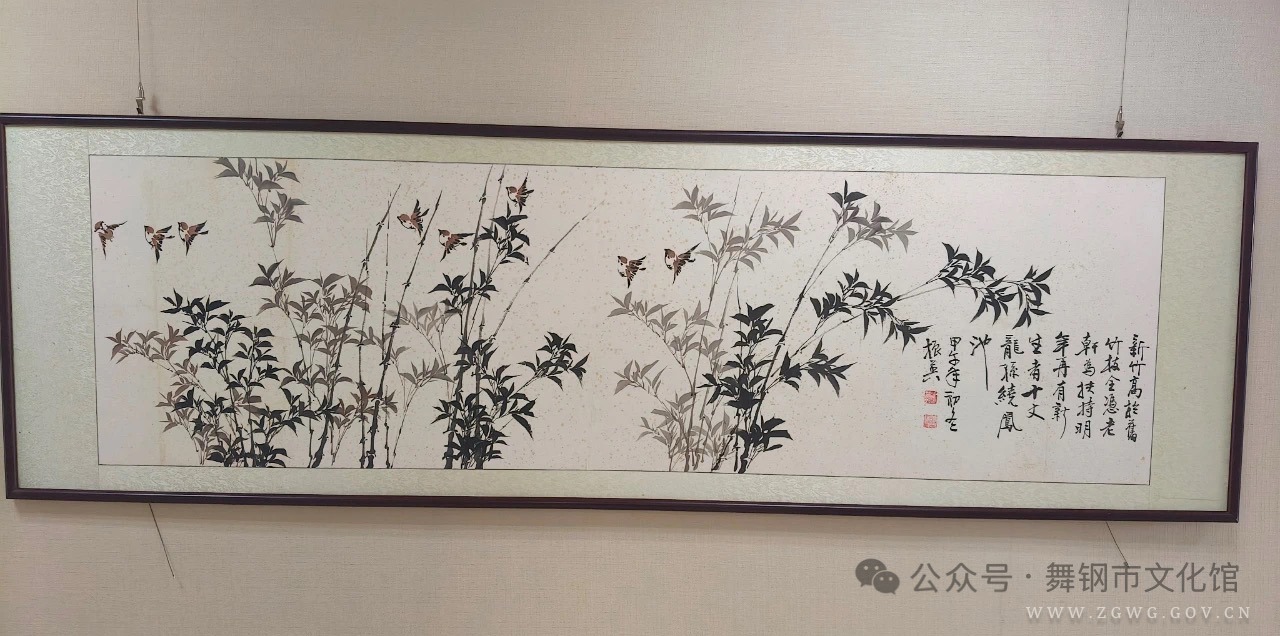 新竹高於舊
竹枝全憑老
幹為扶持明
年再有新
生者十丈
龍孫繞鳳
池
甲午年初冬
振英
公众号·舞钢市文化馆
WWW.ZGWG.GOV.CN